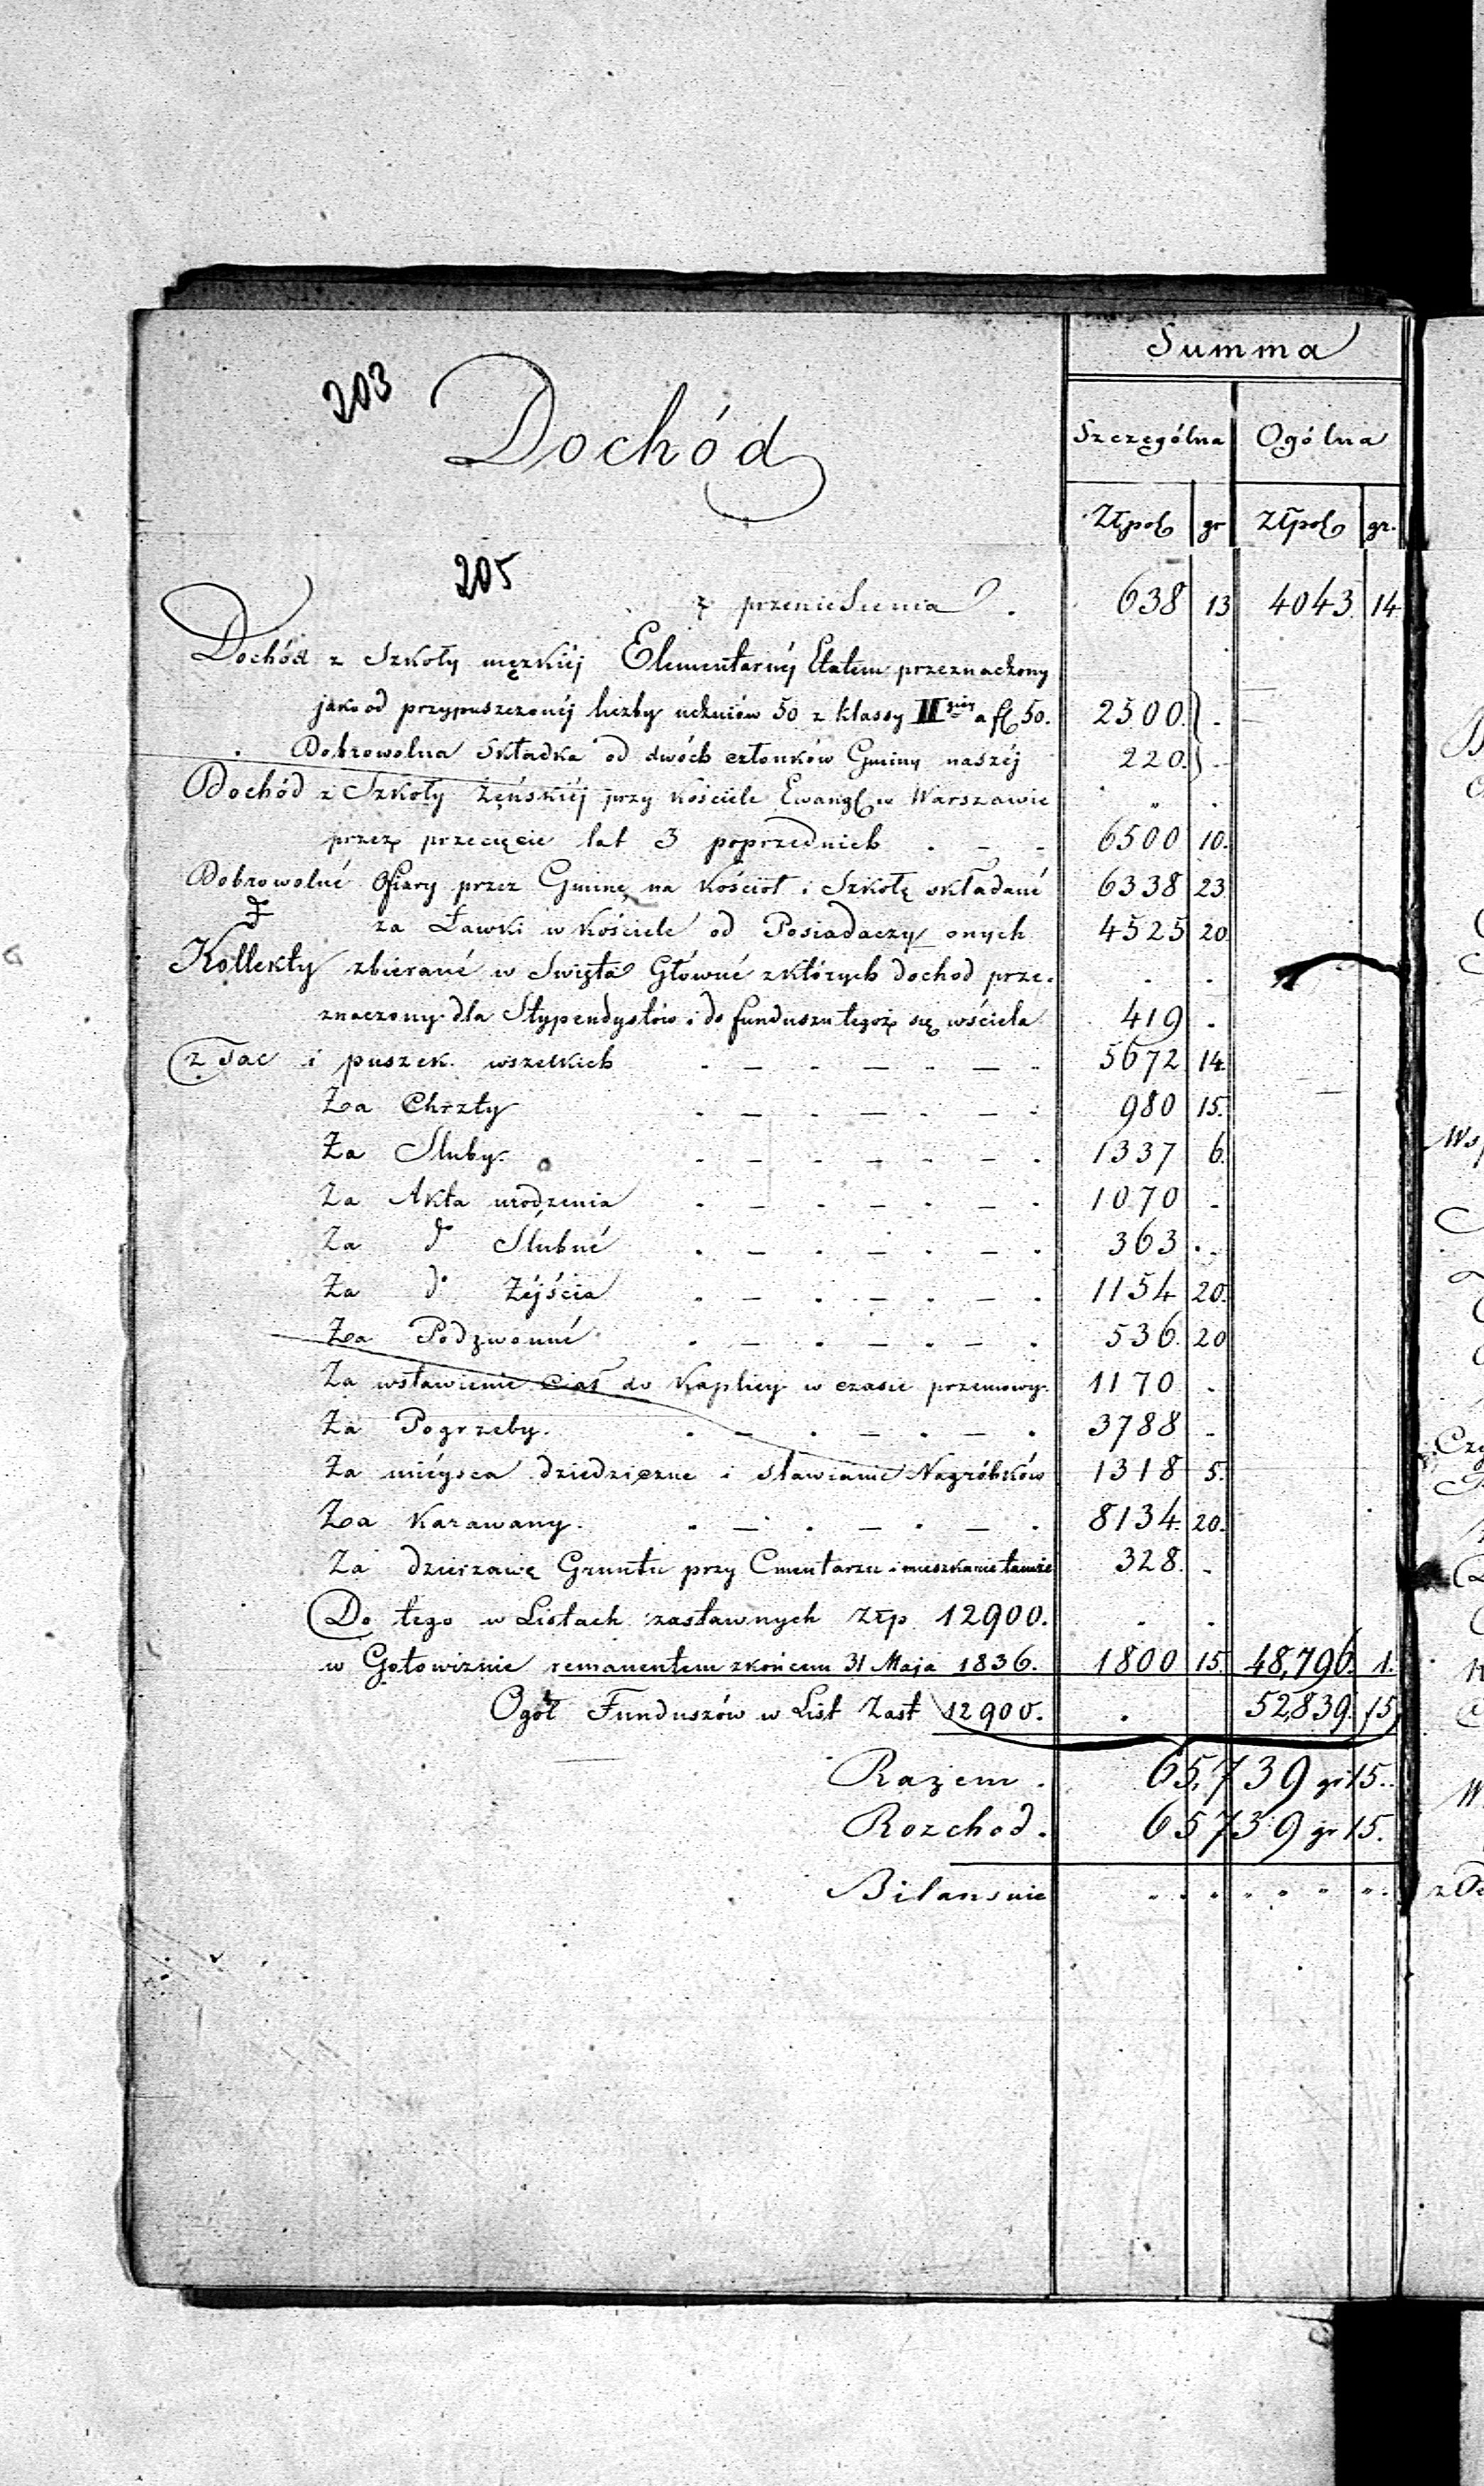 Summa
203
Dochód
Szczególna Ogólna
Złpol gr Złpol gr.
205
z przeniesienia . 638 13 4043 14
Dochód z Szkoły męzkiéj Elementarnéj Etatem przeznaczony
jako od przypuszczonéj liczby uczniów 50 z klassy II giéj a fl 50. 2500. .
Dobrowolna Składka od dwóch członków Gminy naszéj 220. -
Dochód z Szkoły Żeńskiéj przy kościele Ewangl w Warszawie " .
przez przecięcie lat 3 poprzednich . - - 6500 10.
Dobrowolné Ofiary przez Gminę na Kościół i Szkołę składané 6338 23
za Ławki w kościele od Posiadaczy onych 4525 20
Kollekty zbierané w Swięta Główné z których dochod prze- . .
znaczony dla Stypendystów i do funduszu tegoż się wściela 419 .
z Tac i puszek wszelkich . - . - . - . 5672 14
Za Chrzty . - . - . - . 980 15.
Za Sluby. . - . - . - . 1337 6.
Za Akta urodzenia . - . - . - . 1070 -
Za do Ślubné . - . - . - . 363 . -
Za do Zéjścia . - . - . - . 1154 20.
Za Podzwonné . - . - . - . 536. 20
Za wstawienie Ciał do Kaplicy w czasie przemowy. 1170 .
Za Pogrzeby. . - . - . - . 3788 -
Za miéysca dziedziczne i stawianie Nagróbków 1318 5.
Za Karawany. . - . - . - . 8134. 20.
Za dzierzawę Gruntu przy Cmentarzu i mieszkanie tamże 328. -
Do tego w Listach zastawnych Złp 12900. . .
w Gotowiznie remanentem z końcem 31 Maja 1836. 1800 15. 48,796. 1.
Ogół Funduszów w List Zast 12900. . 52,839. 15
Razem . 65,739 gr 15.
Rozchod. 65739 gr 15.
Bilansuie " . " " " " ".